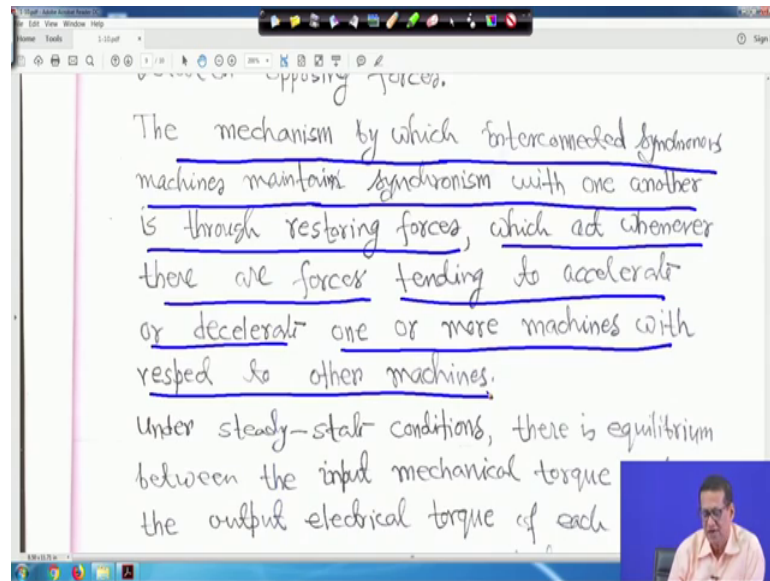 1-10.pdf - Adobe Acrobat Reader DC
File Edit View Window Help
Home Tools 1-10.pdf × Sign
opposing forces.
The mechanism by which interconnected synchronous
machines maintain synchronism with one another
is through restoring forces, which act whenever
there are forces tending to accelerate
or decelerate one or more machines with
respect to other machines.
Under steady-state conditions, there is equilibrium
between the input mechanical torque
the output electrical torque of each
8.50 x 11.75 in